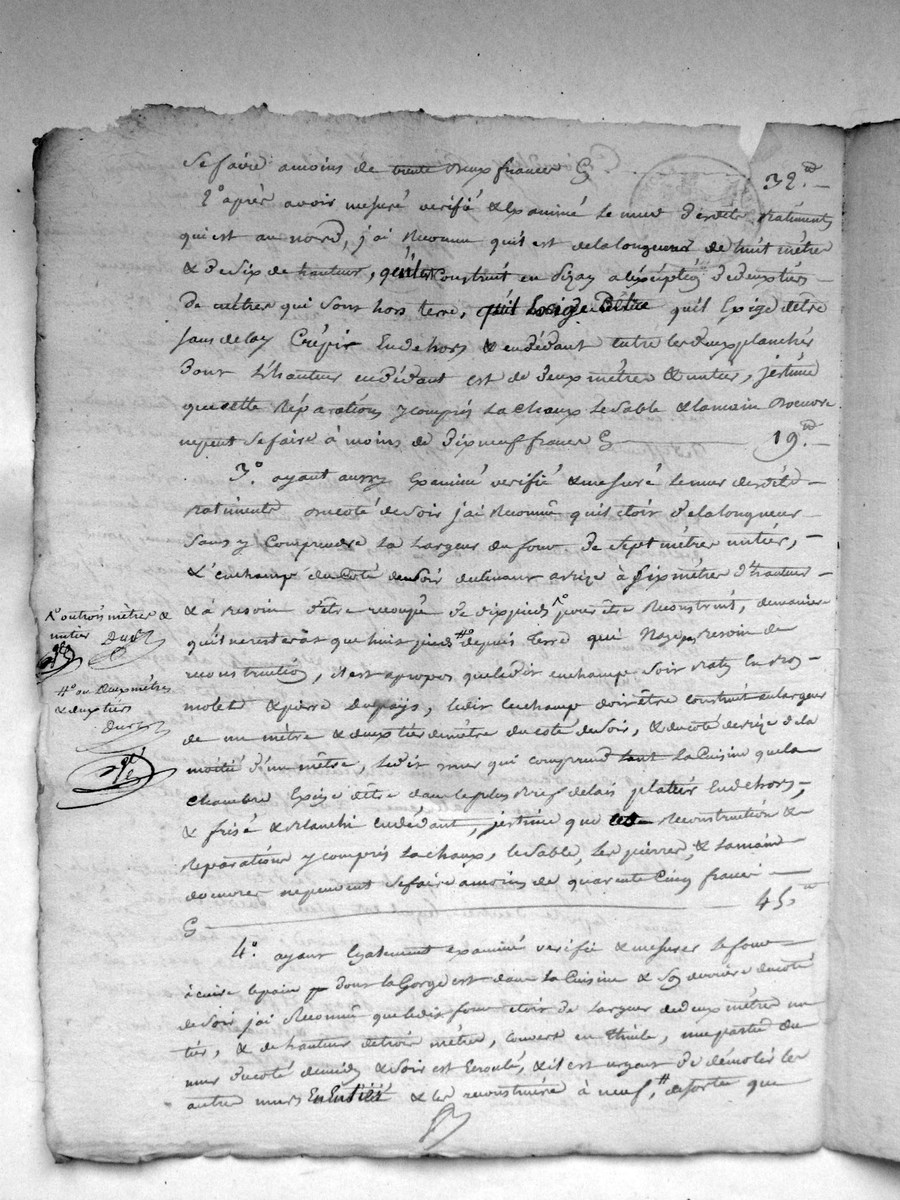 se faire amoins de trente deux francs 32.
2° après avoir mesuré verifié & Examiné le mur desdits Batiments
qui est au nord, j'ai Reconnu qu'il est de la longueur de huit mètre
& de six de hauteur, qu'il est Construit en pizay a l'exception de deux tiers
de mètres qui sons hors terre, qu'il Exige d'être qu'il Exige d'être
sans delay Crépir Endehors & endédant entre les deux planchés
dont l'hauteur endédant est de deux mètre & un tier, j'estime
que cette Réparations y compris la chaux le sable & la main d'oeuvre
ne peut se faire à moins de dix neuf francs 19.
3° ayant aussy Examiné verifié & mesuré le mur desdits
Batiments du coté de soir j'ai Reconnu qu'il etoit de la longueur
sans y Comprendre la largeur du four de sept métre un tier,
& l'enchampe du coté de soir de six métre d'hauteur
& a besoin d'être de dix pieds pour être Reconstruit, de maniere
qu'il ne restera que huit pieds depuis terre qui N'aye pas besoin de
reconstruction, il est apropos que ledit enchampe soit Baty En
& pierre du pays, ledit Enchampe doit être construit en largeur
de un métre & deux tier de mètre du coté du soir, & du coté de bize de la
moitié d'un mètre, ledit mur qui comprend tant la Cuisine que la
chambre Exige d'être dans le plus bref delais platrir Endehors,
& frisé & Blanchi endédant, j'estime que reconstruction &
Réparations y compris la chaux, le sable, les pierres, & la main
d'oeuvres ne peuvent se faire a moins de quarente Cinq francs
45.
4° ayant Egalement examiné verifié & mesurer le four
à cuire le pain dont la Gorge est dans la Cuisine & le derriere du coté
de soir j'ai Reconnu que ledit four etoit de largeur de deux métre un
tier, & de hauteur de trois métre, couvert en thuile, une partie du
mur du coté de midy & soir est Ecroulé, & il est urgent de démolir les
autre murs En Entier & les reconstruire à neuf, de sorte que
1° ou trois mètre &
un tier
4° ou deux métres
& deux tiers